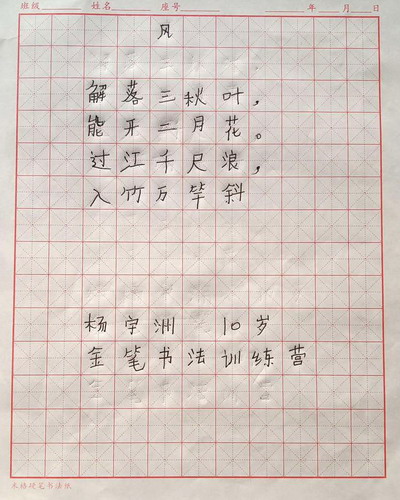 班级 姓名 座号 年 月 日
风
解落三秋叶，
能开二月花。
过江千尺浪，
入竹万竿斜
杨宇洲 10岁
金笔书法训练营
米格硬笔书法纸